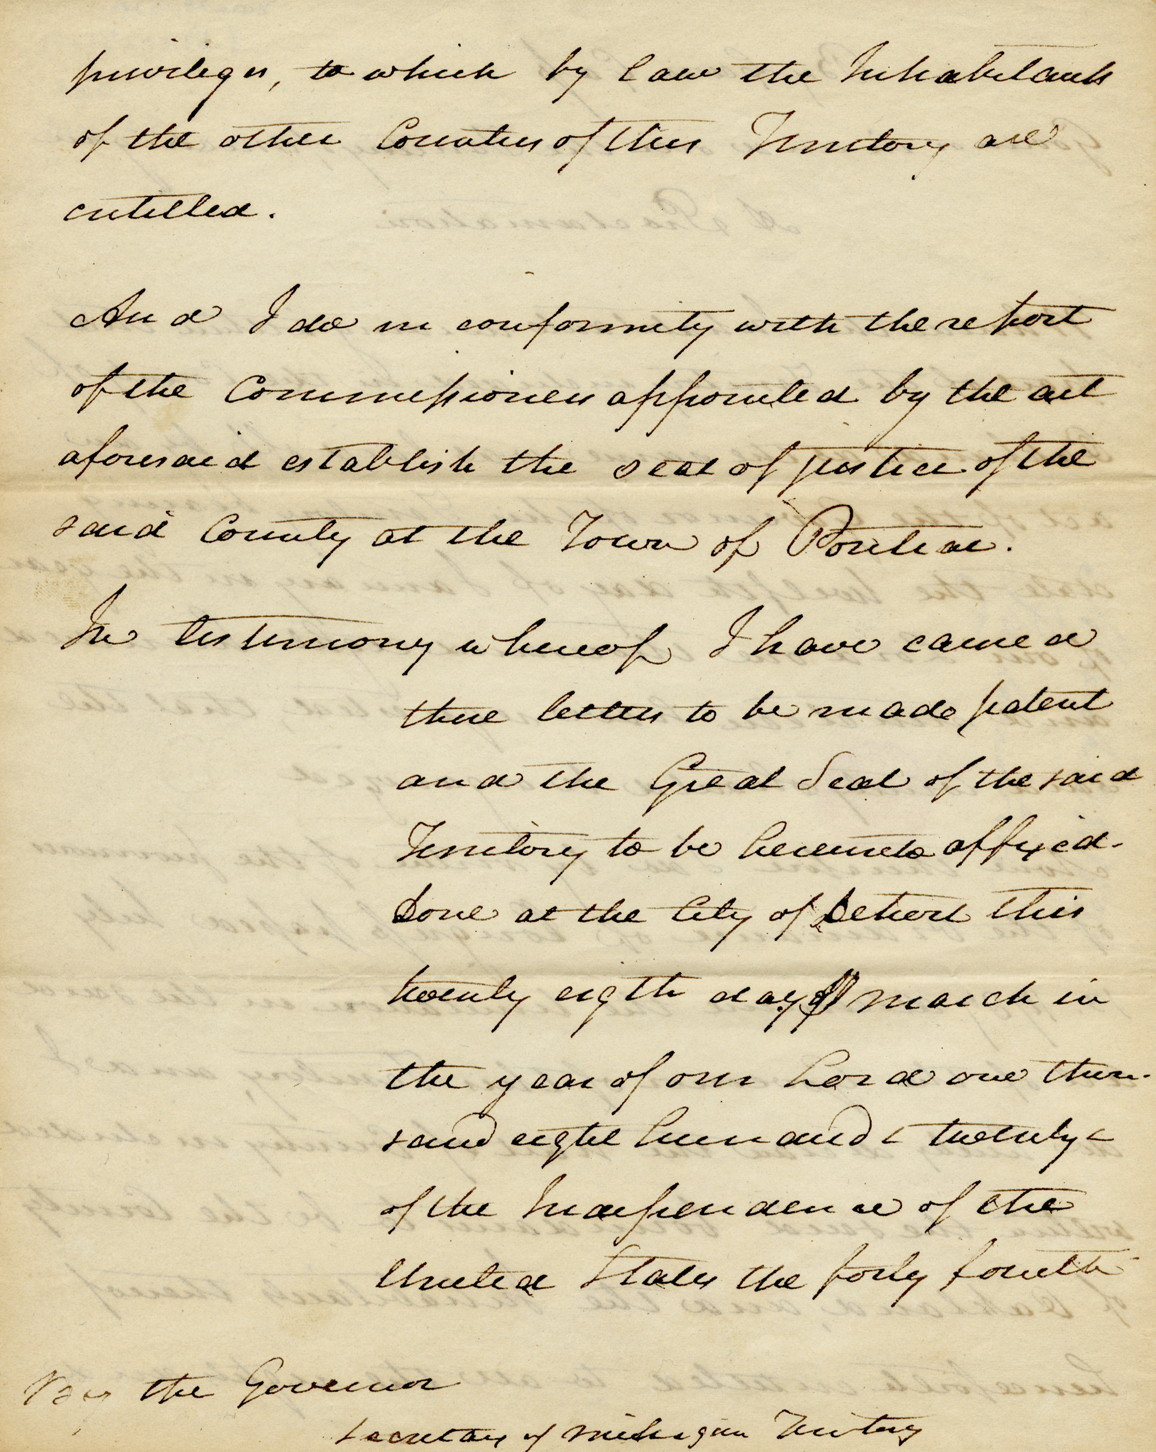 privileges, to which by law the Inhabitants
of the other Counties of this Territory are
entitled.
And I do in conformity with the report
of the Commissioners appointed by the act
aforesaid establish the seat of justice of the
said County at the Town of Pontiac.
In testimony whereof I have caused
these letters to be made patent
and the Great Seal of the said
Territory to be hereunto affixed.
Done at the City of Detroit this
twenty eigth day of march in
the year of our Lord one thou-
sand eight hundred & twenty &
of the Independence of the
United States the forty fourth
By the Governor
Secretary of Michigan Territory